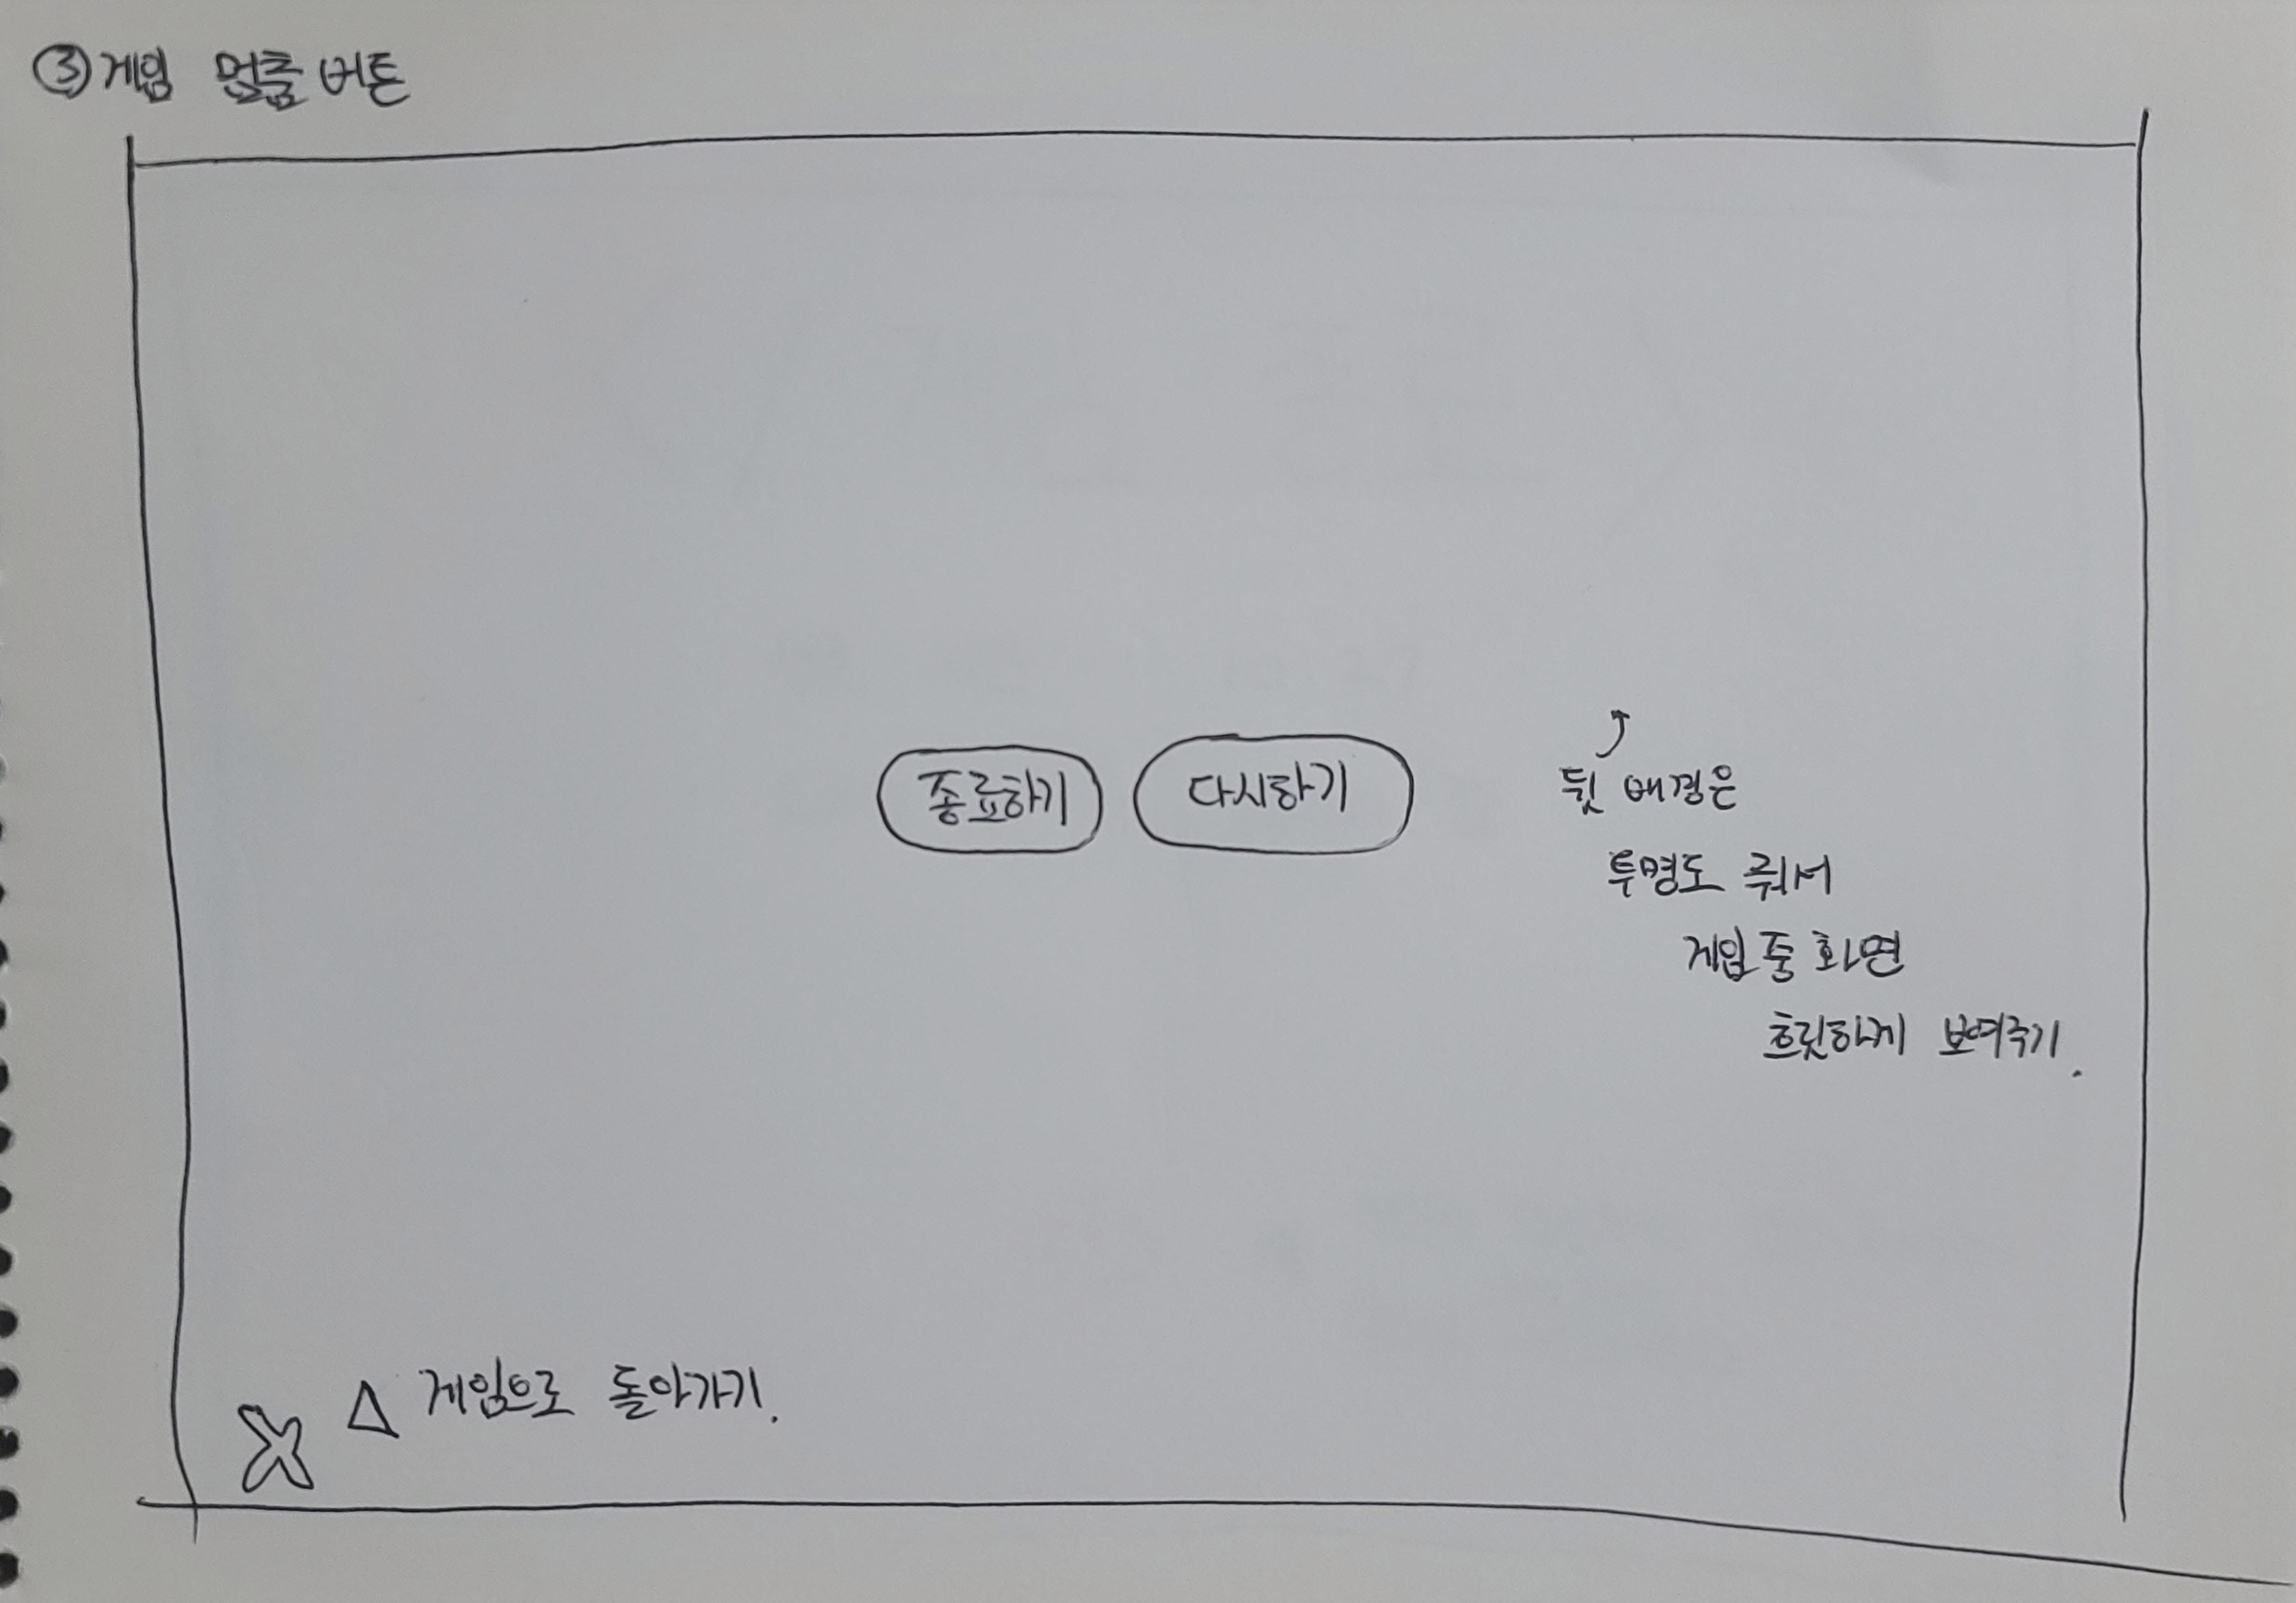 ③ 게임 멈춤 버튼
종료하기 다시하기
뒷 배경은
투명도 줘서
게임 중 화면
흐릿하게 보여주기.
X △ 게임으로 돌아가기.